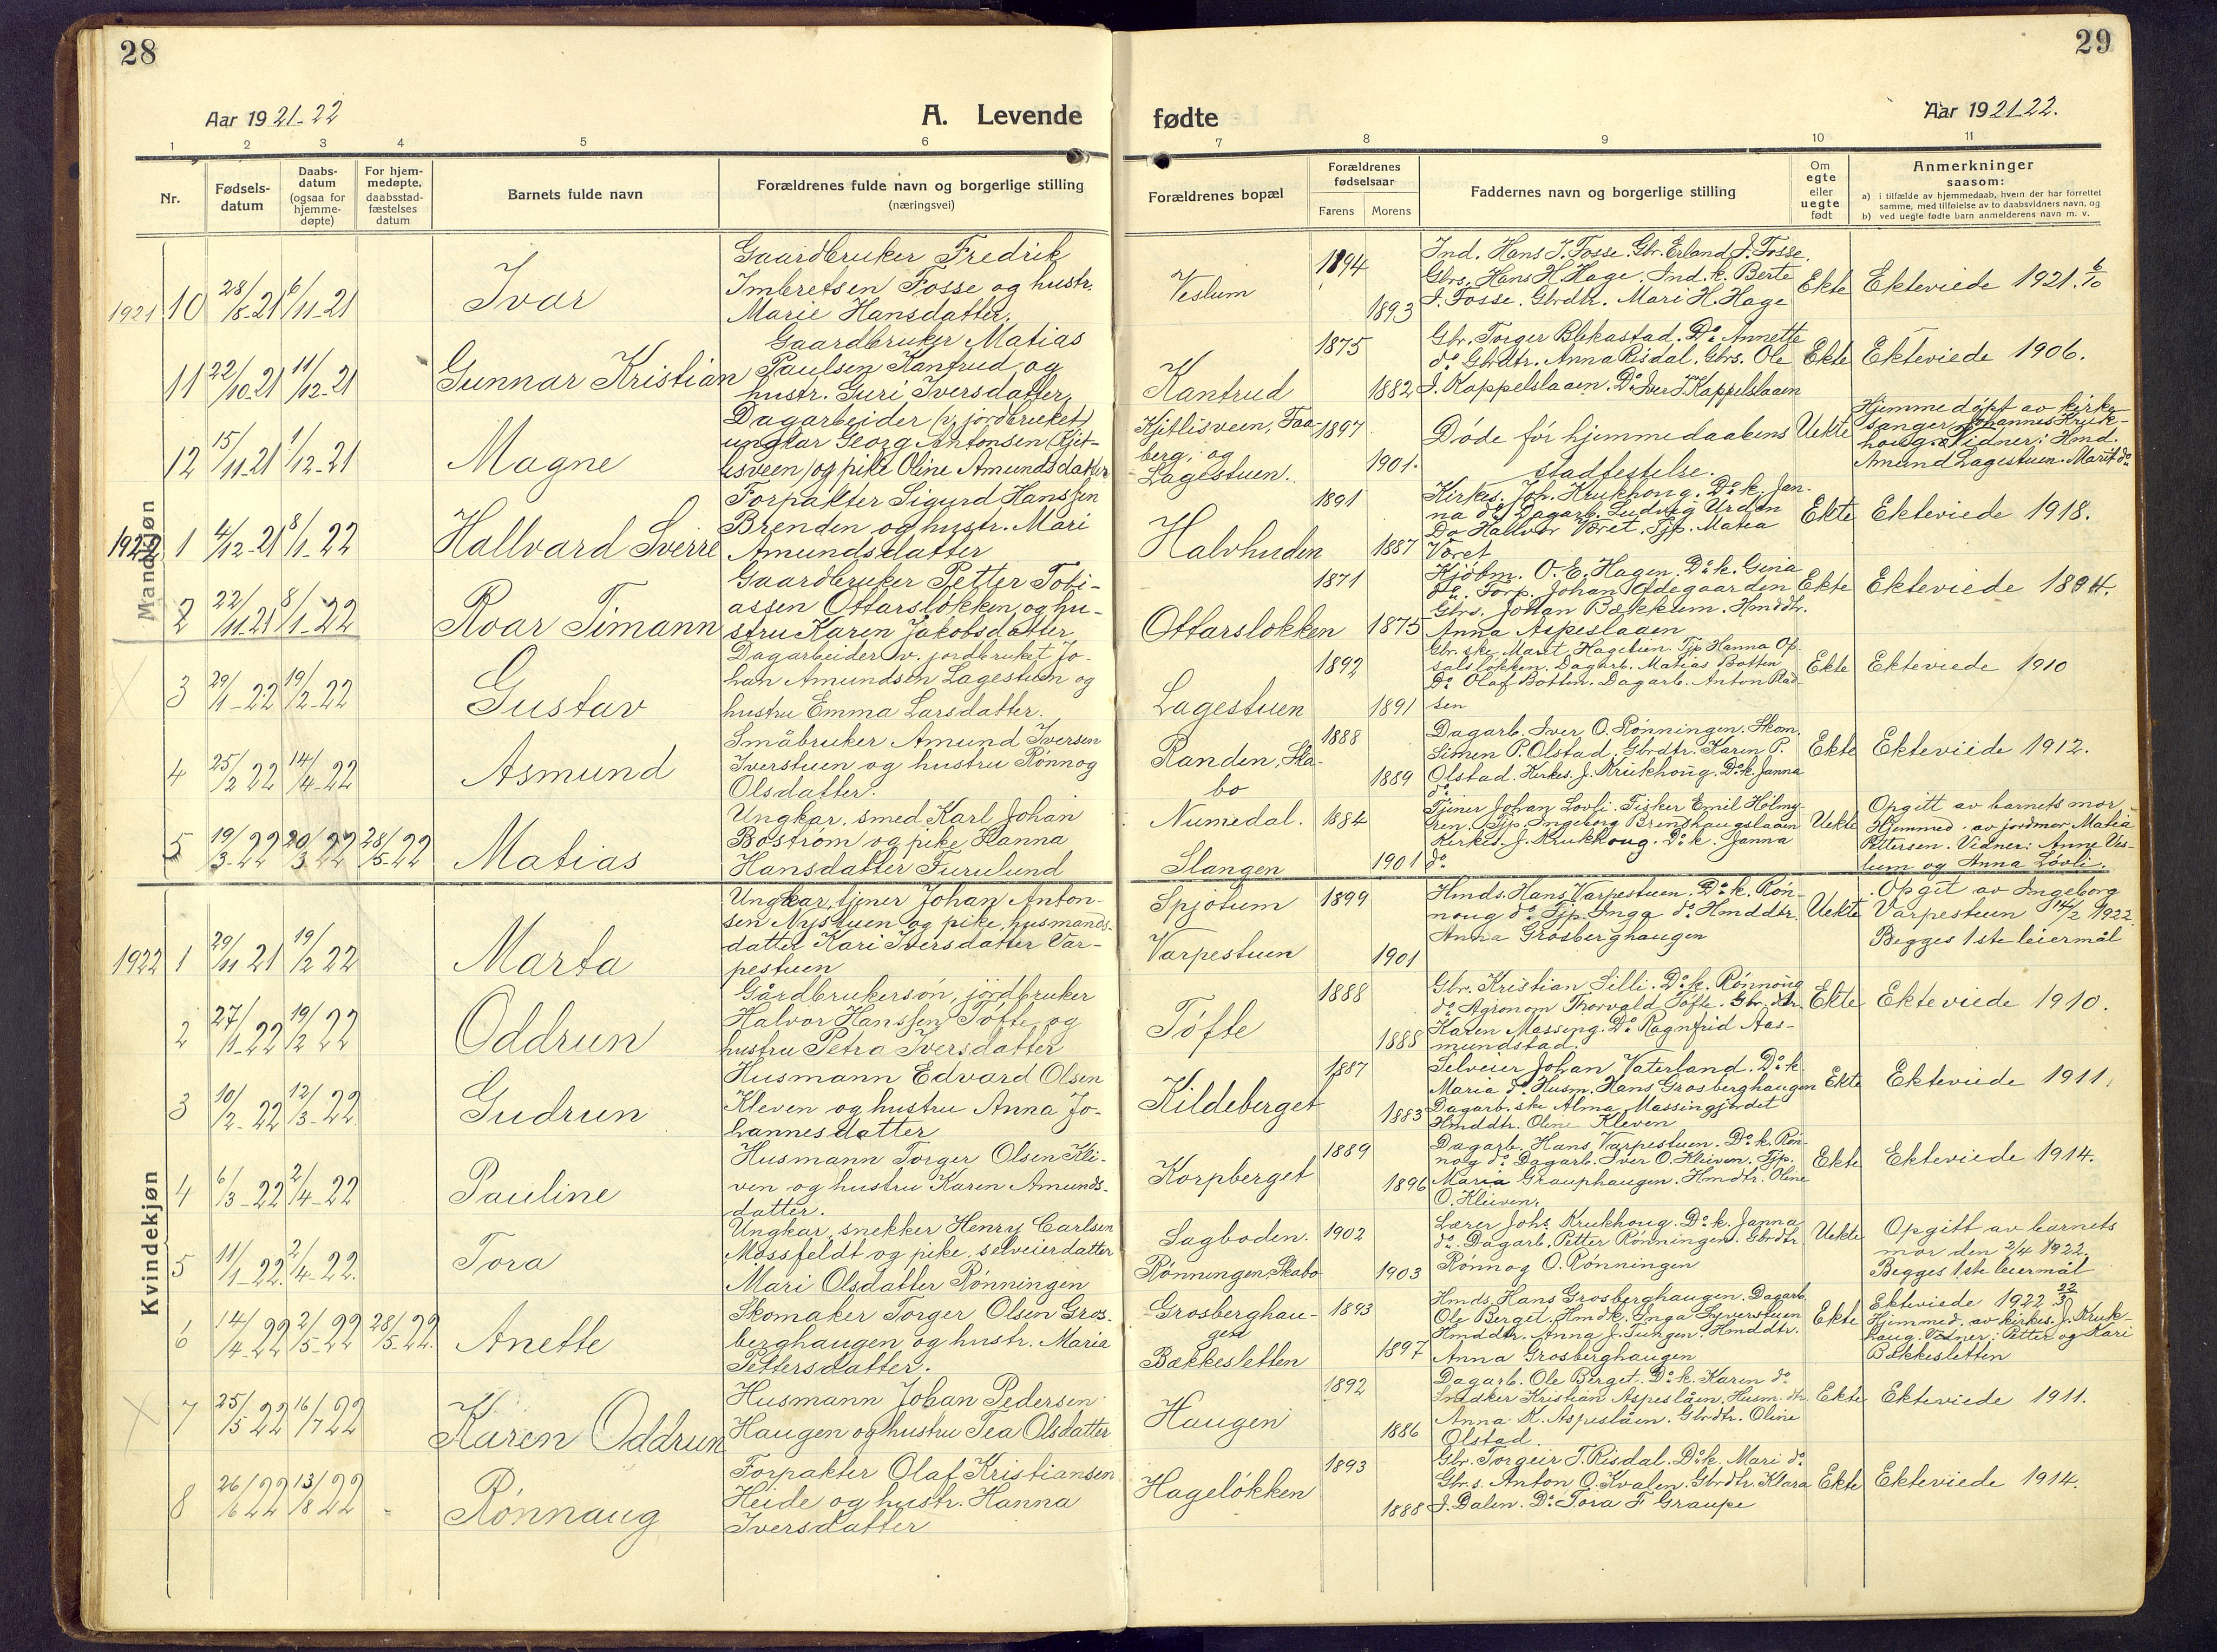 28
29
Aar 1921-22
A. Levende
fødte
Aar 1921-22.
1 2 3 4 5 6 7 8 9 10 11
Nr.
Fødsels-
datum
Daabs-
datum
(ogsaa for
hjemme-
døpte)
For hjem-
medøpte,
daabsstad-
fæstelses
datum
Barnets fulde navn
Forældrenes fulde navn og borgerlige stilling
(næringsvei)
Forældrenes bopæl
Forældrenes
fødselsaar
Farens Morens
Faddernes navn og borgerlige stilling
Om
egte
eller
uegte
født
Anmerkninger
saasom:
a) i tilfælde av hjemmedaab, hvem der har forrettet
samme, med tilføielse av to daabsvidners navn, og
b) ved uegte fødte barn anmelderens navn m. v.
Mandkjøn
1921 10 28/8-21 6/11-21
Ivar
Gaardbruker Fredrik
Imbretsen Fosse og hustr.
Marie Hansdatter.
Veslum
1894
1893
Ind. Hans I. Fosse. Gbr. Erland J. Fosse.
Gbrs. Hans H. Hage. Ind. k. Berte
J. Fosse. Gbrdtr. Mari H. Hage
Ekte
Ekteviede 1921. 6/10
11 22/10-21 11/12-21
Gunnar Kristian
Gaardbruker Matias
Paulsen Kantrud, og
hustr. Guri Iversdatter.
Kantrud
1875
1882
Gbr. Torger Blekastad. Do Annette
do. Gbrdtr. Anna Risdal. Gbrs. Ole
J. Koppelslaaen. Do Iver J. Kappelslaaen
Ekte
Ekteviede 1906.
12 15/11-21 1/12-21
Magne
Dagarbeider (v. jordbruket)
ungkar Georg Antonsen (Kjit-
lisveen) og pike Oline Amundsdatter
Kjitlisveen, Faa-
berg, og
Lagestuen.
1897
1901.
Døde før hjemmedaabens
stadfestelse.
Uekte
Hjemmedøpt av kirke-
sanger Johannes Kruk-
houg. Vidner: Hmd.
Amund Lagestuen. Marit do
1922 1 4/12-21 8/1 22
Hallvard Sverre
Forpakter Sigurd Hanssen
Brenden og hustr. Mari
Amundsdatter
Halvhuden
1891
1887
Kirkes. Joh. Krukhoug. Do k. Jan-
na do Dagarb. Ludvig Urden
Do Hallvor Været. Tjp. Matea
Været
Ekte
Ekteviede 1918.
2 22/11-21 8/1-22
Roar Timann
Gaardbruker Petter Tobi-
assen Ottarsløkken, og hu-
stru Karen Jakobsdatter
Ottarsløkken
1871
1875
Kjøbm. O. E. Hagen. Do k. Gina
do. Forp. Johan Ødegaarden
Gbrs. Johan Bækkum. Hmddtr.
Anna Aspeslaaen
Ekte
Ekteviede 1894.
3 29/1-22 19/2-22
Gustav
Dagarbeider v. jordbruket Jo-
han Amundsen Lagestuen og
hustru Emma Larsdatter.
Lagestuen
1892
1891
Gbr. ske Marit Hagelien. Tjp Hanna Op-
salsløkken. Dagarb. Matias Botten
Do Olaf Botten. Dagarb. Anton Rad-
sen
Ekte
Ekteviede 1910
4 25/2 22 14/4-22
Asmund
Småbruker Amund Iversen
Iverstuen og hustru Rønnog
Olsdatter.
Randen, Ska-
bo
1888
1889
Dagarb. Iver O. Rønningen. Skom.
Simen P. Olstad. Gbrdtr. Karen P.
Olstad. Kirkes. J. Krukhoug. Do k. Janna
do
Ekte
Ekteviede 1912.
5 19/3-22 20/3 22 28/5-22
Matias
Ungkar, smed Karl Johan
Bostrøm og pike Hanna
Hansdatter Furulund
Numedal.
Slangen
1884
1901
Tjener Johan Lovli. Fisker Emil Holmg-
ren. Tjp. Ingeborg Brendhaugslaaen
Kirkes. J. Krukhoug. Do k. Janna
do
Uekte
Opgitt av barnets mor
Hjemmed. av jordmor Matia
Pettersen. Vidner: Anne Ves-
lum og Anna Lovli.
Kvindekjøn
1922 1 29/11 21 19/2 22
Marta
Ungkar, tjener Johan Anton-
sen Nystuen og pike, husmands-
datter Kari Iversdatter Var-
pestuen
Spjotum
Varpestuen
1899
1901
Hmds. Hans Varpestuen. Do k. Røn-
noug do Tjp. Inga do. Hmddtr.
Anna Grosberghaugen
Uekte
Opgit av Ingeborg
Varpestuen 14/2 1922
Begges 1ste leiermål
2 27/1-22 19/2 22
Oddrun
Gårdbrukersøn, jordbruker
Halvor Hanssen Tofte og
hustru Petra Iversdatter
Tofte
1888
1888
Gbr. Kristian Lilli. Do k. Rønnoug
do Agronom Thorvald Tofte. Gbr. dtr
Karen Masseng. Do Ragnfrid Aas-
mundstad.
Ekte
Ekteviede 1910.
3 10/2-22 12/3-22
Gudrun
Husmann Edvard Olsen
Kleven og hustru Anna Jo-
hannesdatter
Kildeberget
1887
1883
Selveier Johan Vaterland. Do k
Maria do Husm. Hans Grosberghaugen
Dagarb. ske Alma Massingjordet
Hmddtr. Oline Kleven
Ekte
Ekteviede 1911.
4 6/3-22 2/4-22
Pauline
Husmann Torger Olsen Kle-
ven og hustru Karen Amunds-
datter.
Korpberget
1889
1896
Dagarb. Hans Varpestuen. Do k. Røn-
nog do Dagarb. Iver O. Kleiven. Tjp.
Maria Grauphaugen. Hmdtr. Oline
O. Kleiven.
Ekte
Ekteviede 1914.
5 11/1-22. 2/4-22.
Tora
Ungkar, snekker Henry Carlsen
Mossfeldt og pike, selveierdatter
Mari Olsdatter Rønningen
Sagboden.
Rønningen, Skabo
1902
1903
Lærer Johs. Krukhoug. Do k. Janna
do. Dagarb. Petter Rønningen. Gbrdtr
Rønnog O. Rønningen
Uekte
Opgitt av barnets
mor den 2/4 1922.
Begges 1ste leiermål
6 14/4-22 2/5-22 28/5-22.
Anette
Skomaker Torger Olsen Gros-
berghaugen og hustr. Maria
Pettersdatter.
Grosberghau-
gen
Bækkesletten
1893
1897
Hmds. Hans Grosberghaugen. Dagarb.
Ole Berget. Hmdk. Inga Syverstuen
Hmddtr. Anna J. Tungen. Hmddtr.
Anna Grosberghaugen
Ekte
Ekteviede 1922 22/3
Hjemmed. av kirkes. J. Kruk-
haug. Vidner: Petter og Kari
Bækkesletten
7 25/5 22 16/7 22
Karen Oddrun
Husmann Johan Pedersen
Haugen og hustru Tea Olsdatter
Haugen
1892
1886
Dagarb. Ole Berget. Do k. Karen do
Snedker Kristian Aspeslåen. Husm. dtr
Anna K. Aspeslåen. Gbrdtr. Oline
Olstad.
Ekte
Ekteviede 1911.
8 26/6 22 13/8 22
Rønnaug
Forpakter Olaf Kristiansen
Heide og hustr. Hanna
Iversdatter
Hageløkken
1893
1888
Gbr. Torgeir T. Risdal. Do k. Mari do
Gbrs. Anton O. Kvalen. Gbrdtr. Klara
J. Dalen. Do Tora F Graupe
Ekte
Ekteviede 1914.